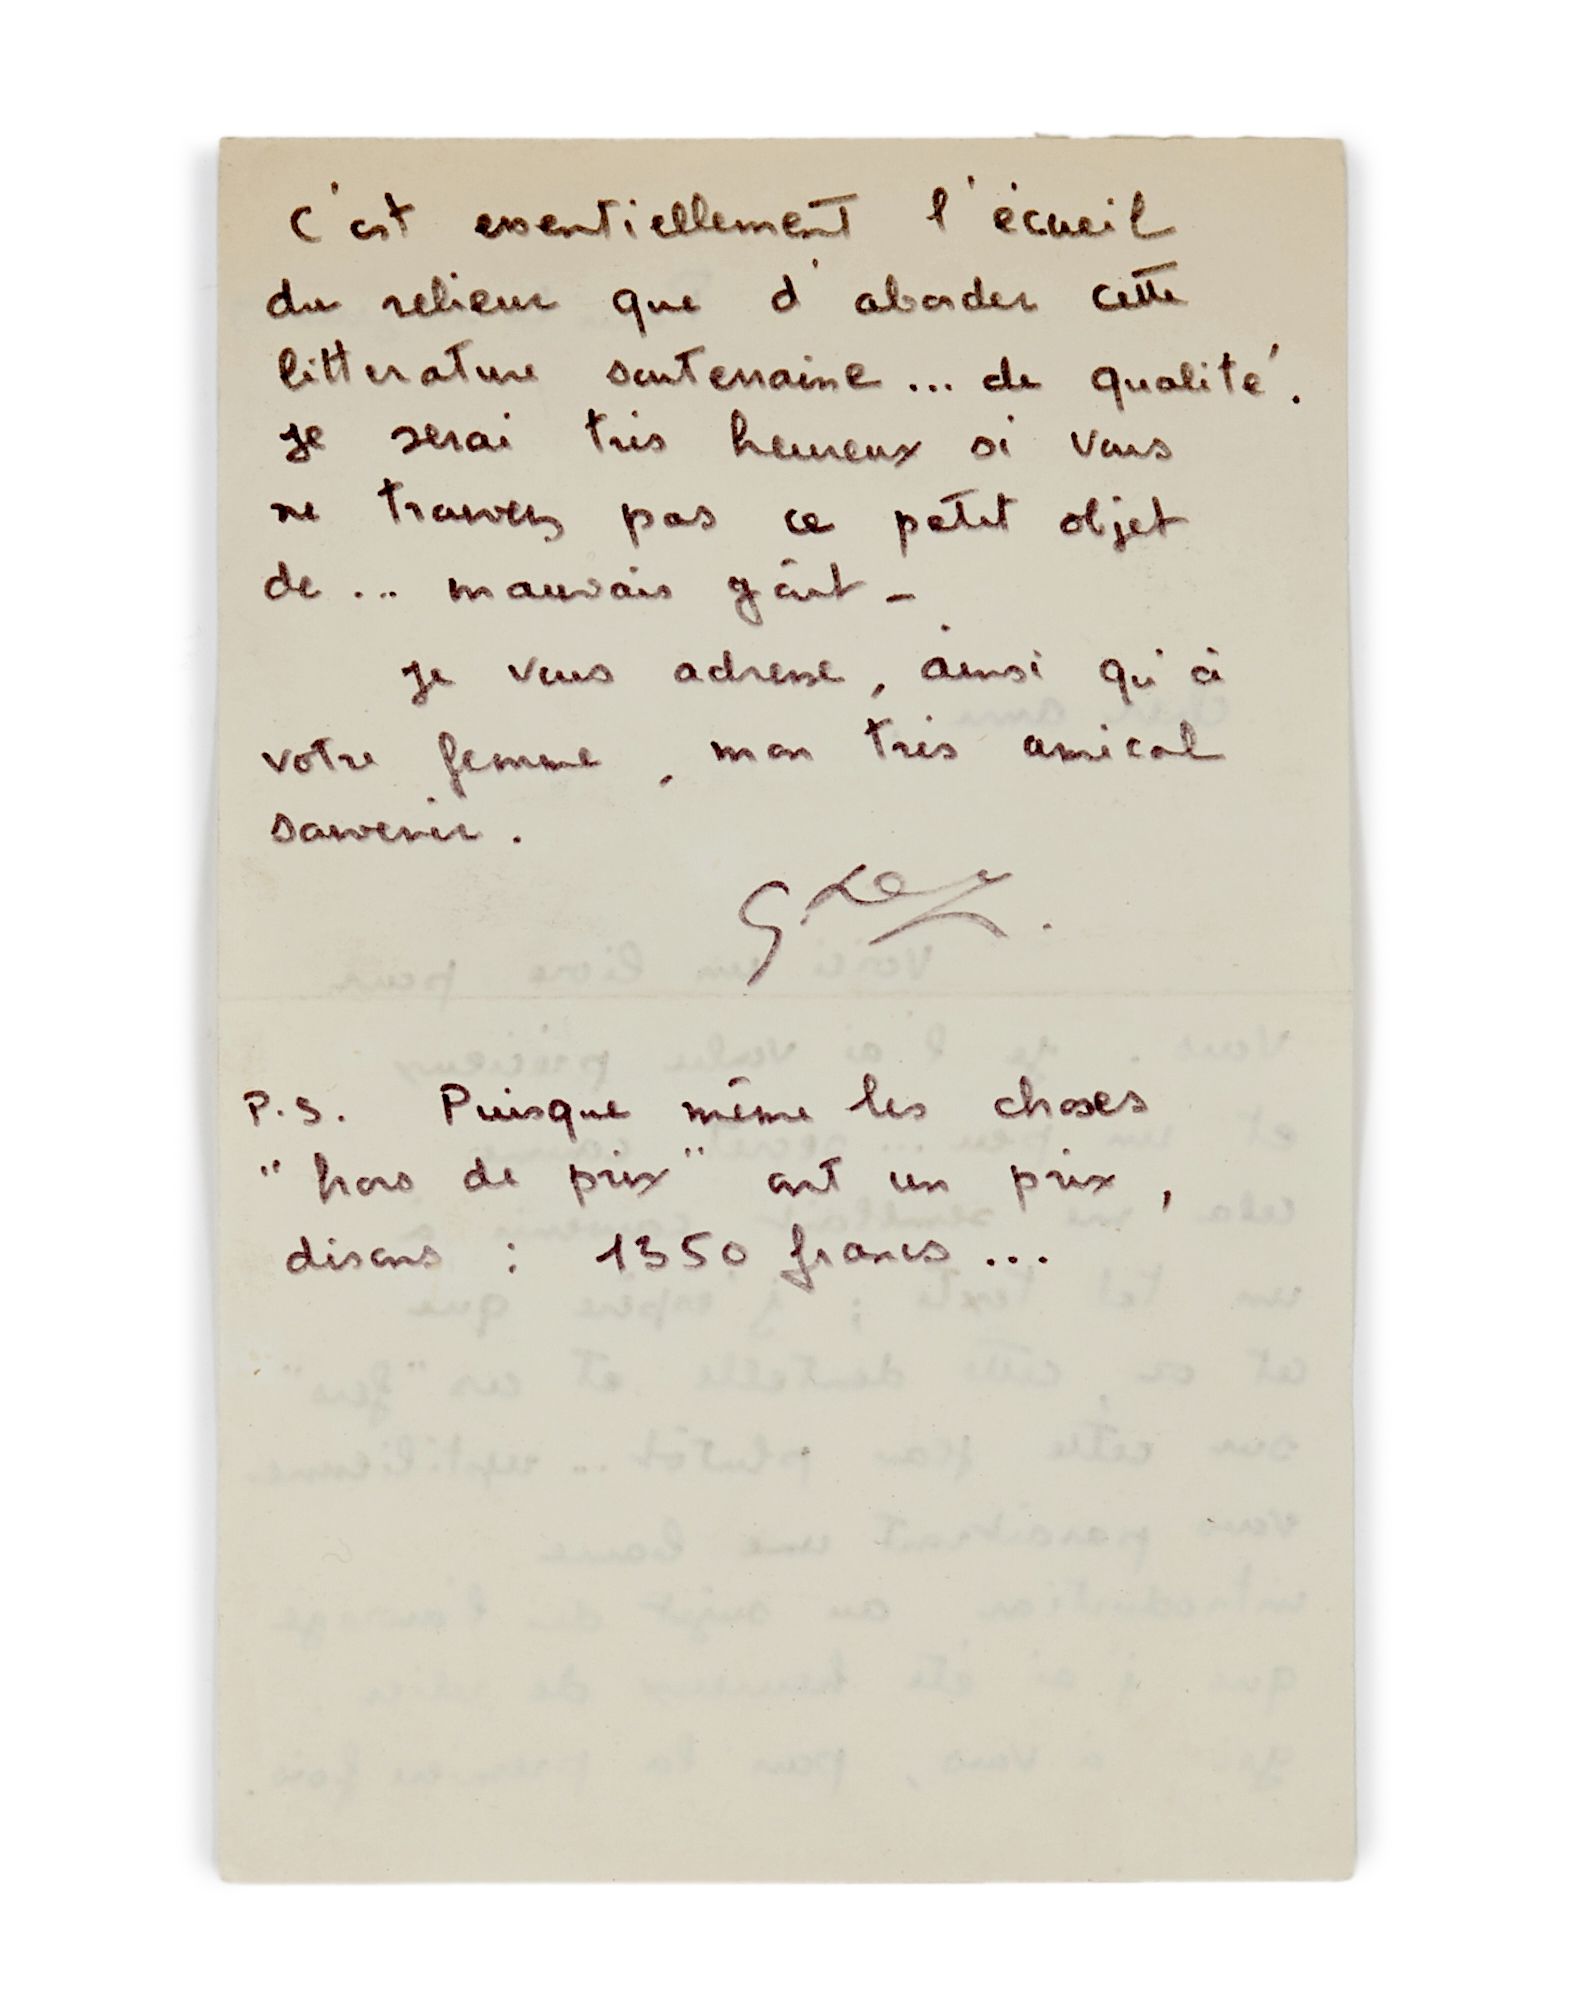 C'est essentiellement l'écueil
du relieur que d'aborder cette
litterature souterraine... de qualité.
Je serai très heureux si vous
ne trouvez pas ce petit objet
de... mauvais goût -
Je vous adresse, ainsi qu'à
votre femme, mon très amical
souvenir.
P.S. Puisque même les choses
"hors de prix" ont un prix,
disons : 1350 francs...